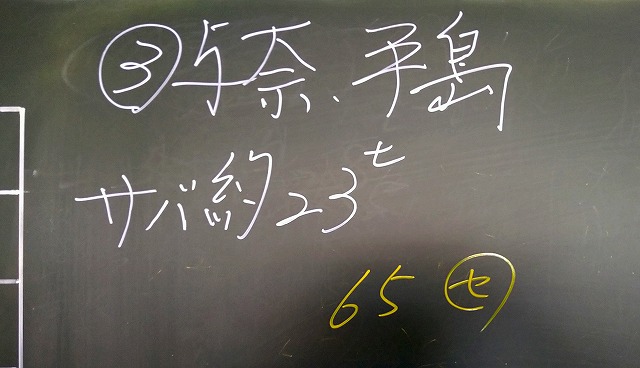 ③与奈、平島
サバ約23t
65 ㋝